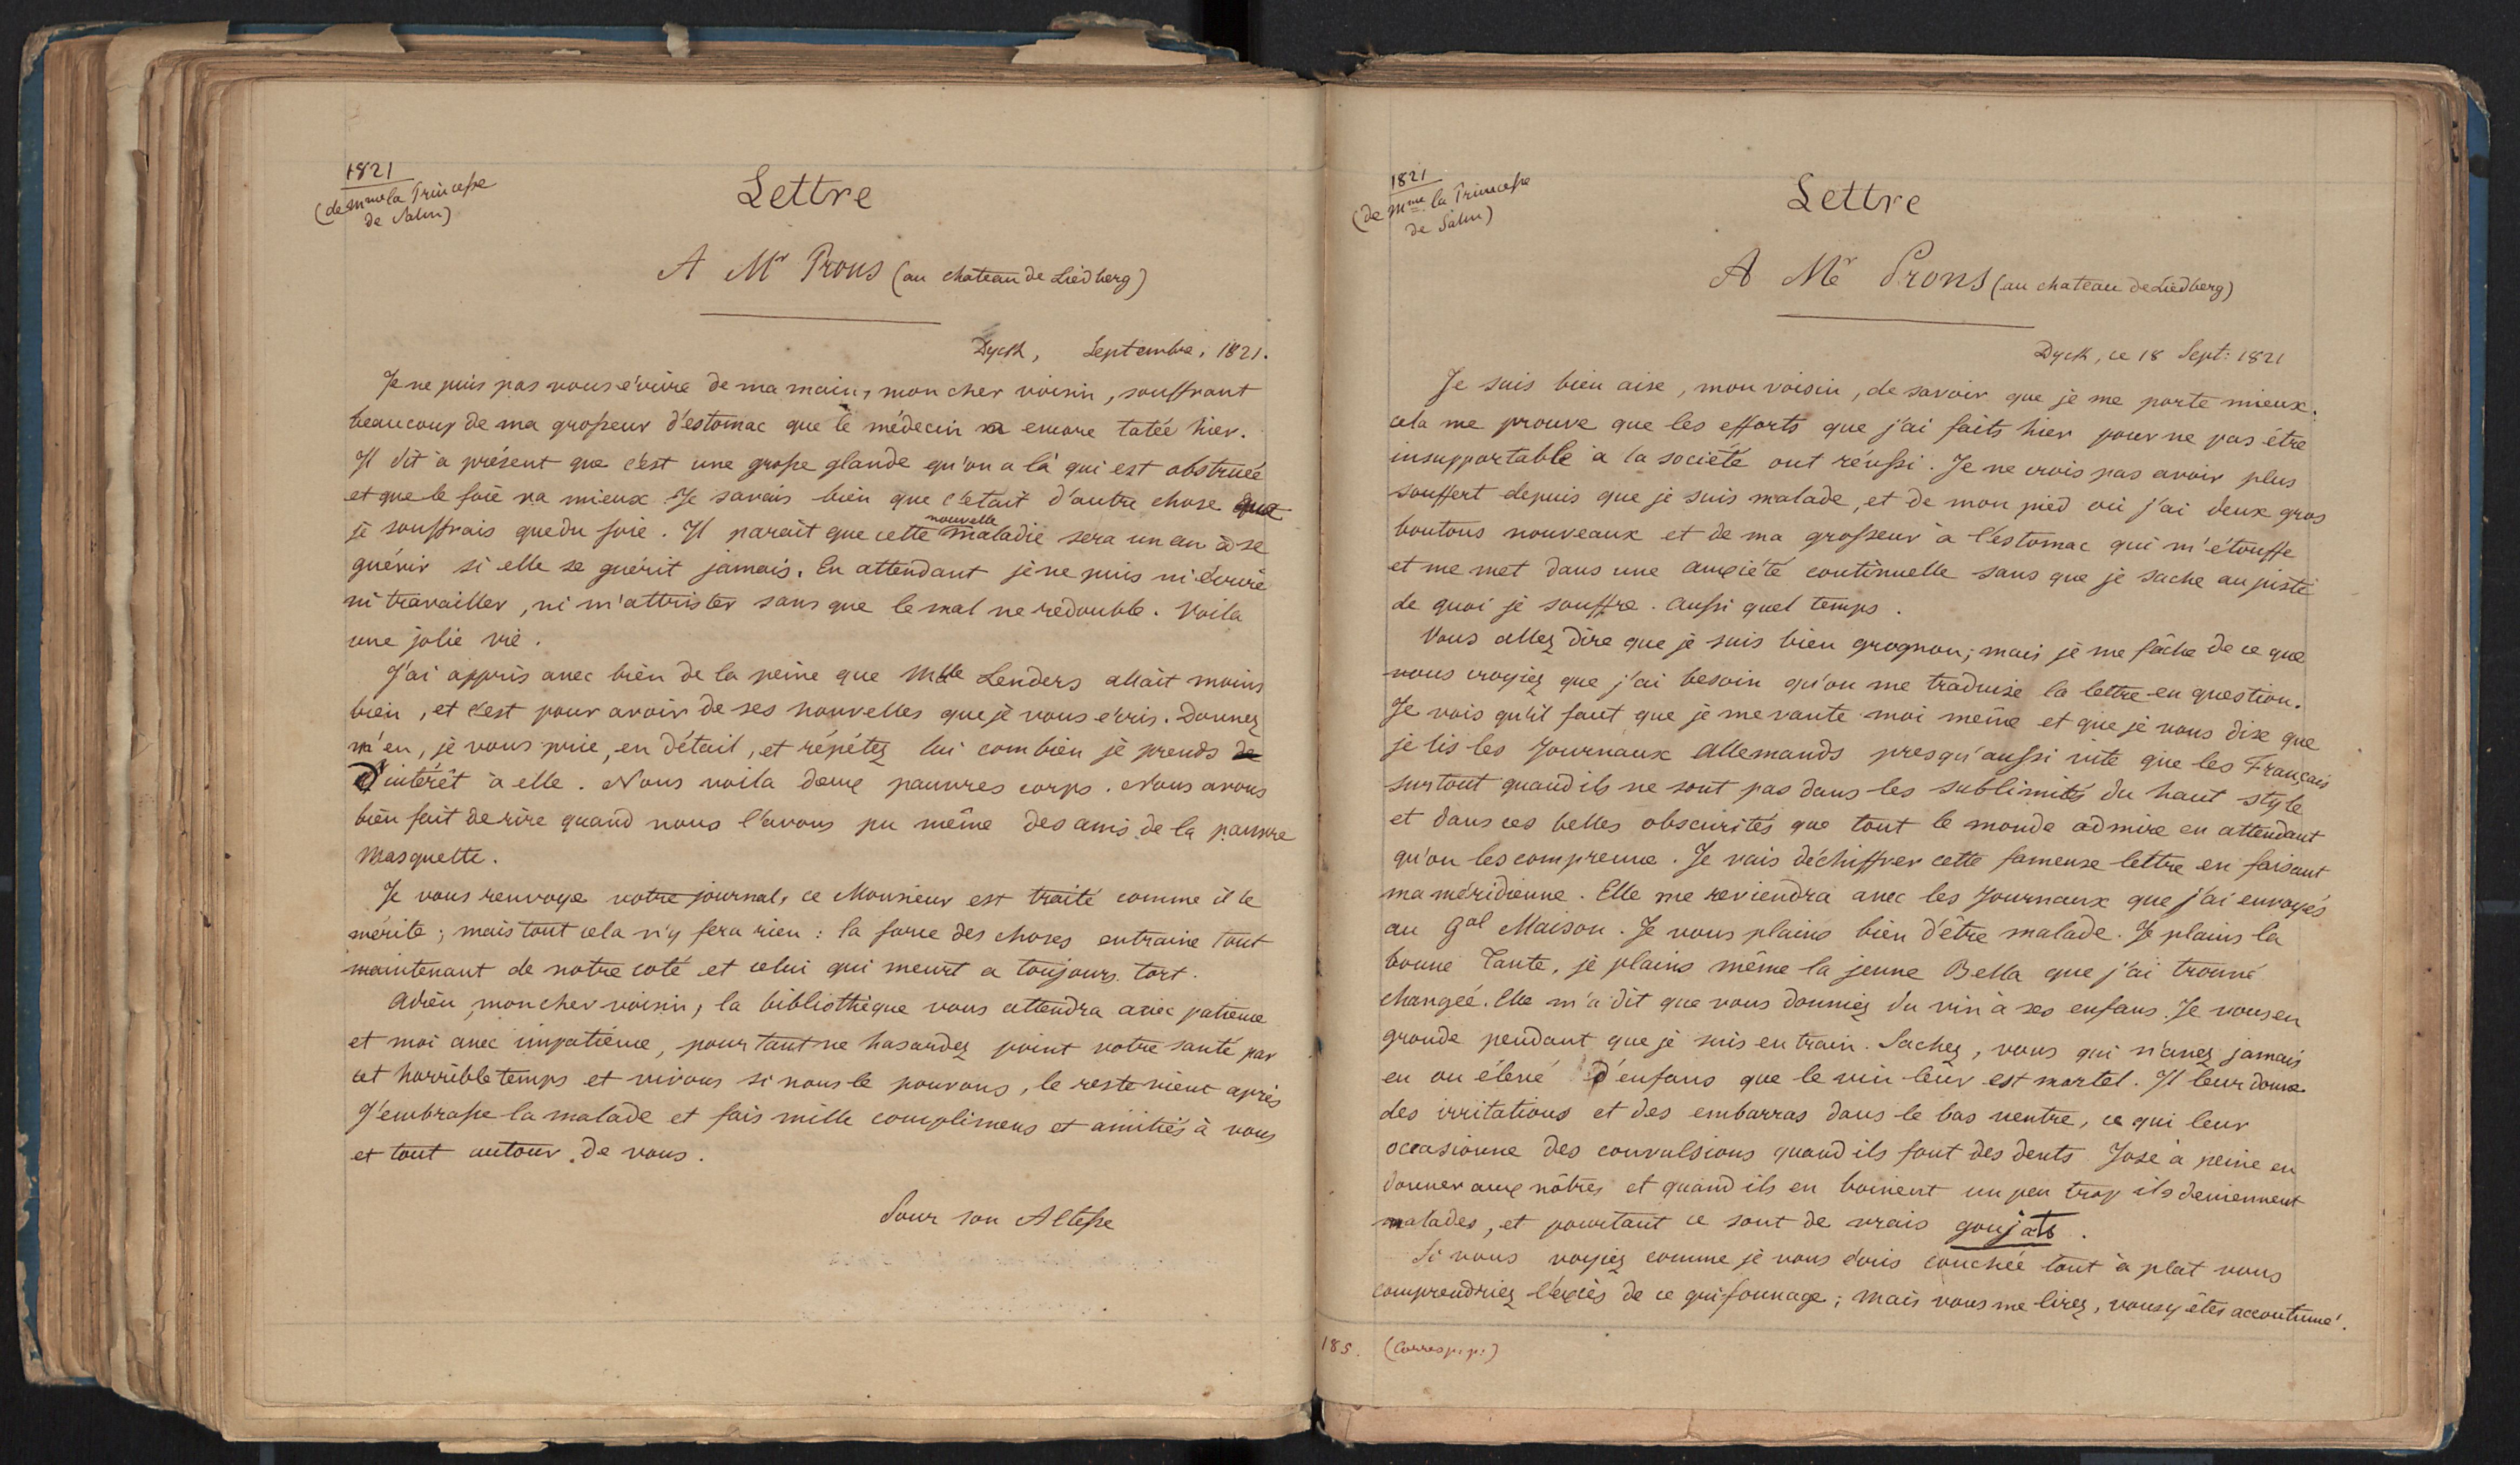 1821
(de Mme la Princesse
de Salm)
Lettre
A Mr Prons (au chateau de Liedberg)
Dyck, Septembre, 1821.
Je ne puis pas vous écrire de ma main, mon cher voisin, souffrant
beaucoup de ma grosseur d'estomac que le médecin a encore tatée hier.
Il dit à présent que c'est une grosse glande qu'on a là qui est obstruée
et que le foie va mieux. Je savais bien que c'etait d'autre chose que
je souffrais que du foie. Il parait que cette nouvelle maladie sera un an à se
guérir si elle se guérit jamais. En attendant je ne puis ni écrire
ni travailler, ni m'attrister sans que le mal ne redouble. Voila
une jolie vie.
J'ai appris avec bien de la peine que Mlle Lenders allait moins
bien, et c'est pour avoir de ses nouvelles que je vous écris. Donnez
m'en, je vous prie, en détail, et répétez lui combien je prends de
d'intérêt à elle. Nous voila deux pauvres corps. Nous avons
bien fait de rire quand nous l'avons pu même des amis de la pauvre
Masquette.
Je vous renvoye votre journal, ce Monsieur est traité comme il le
mérite; mais tout cela n'y fera rien: la force des choses entraine tout
maintenant de notre coté et celui qui meurt a toujours tort.
Adieu, mon cher voisin, la bibliothèque vous attendra avec patience
et moi avec impatience, pourtant ne hasardez point votre santé par
cet horrible temps et vivons si nous le pouvons, le reste vient après
J'embrasse la malade et fais mille complimens et amitiés à vous
et tout autour de vous.
Pour son Altesse
1821
(de Mme la Princesse
de Salm)
Lettre
A Mr Prons (au chateau de Liedberg)
Dyck, ce 18 Sept: 1821
Je suis bien aise, mon voisin, de savoir que je me porte mieux.
cela me prouve que les efforts que j'ai faits hier pour ne pas être
insupportable à la société ont réussi. Je ne crois pas avoir plus
souffert depuis que je suis malade, et de mon pied où j'ai deux gros
boutons nouveaux et de ma grosseur à l'estomac qui m'étouffe
et me met dans une anxiété continuelle sans que je sache au juste
de quoi je souffre. Aussi quel temps.
Vous allez dire que je suis bien grognon; mais je me fâche de ce que
vous croyiez que j'ai besoin qu'on me traduise la lettre en question.
Je vois qu'il faut que je me vante moi même et que je vous dise que
je lis les Journaux Allemands presqu'aussi vite que les Français
surtout quand ils ne sont pas dans les sublimités du haut style
et dans ces belles obscurités que tout le monde admire en attendant
qu'on les comprenne. Je vais déchiffrer cette fameuse lettre en faisant
ma méridienne. Elle me reviendra avec les Journaux que j'ai envoyés
au Gal Maison. Je vous plains bien d'être malade. Je plains la
bonne Tante, je plains même la jeune Bella que j'ai trouvé
changée. Elle m'a dit que vous donniez du vin à ses enfans. Je vous en
gronde pendant que je suis en train. Sachez, vous qui n'avez jamais
eu ou élevé d'enfans que le vin leur est mortel. Il leur donne
des irritations et des embarras dans le bas ventre, ce qui leur
occasionne des convulsions quand ils font des dents. J'ose à peine en
donner aux nôtres et quand ils en boivent un peu trop ils deviennent
malades, et pourtant ce sont de vrais goujats.
Si vous voyiez comme je vous écris couchée tout à plat vous
comprendriez l'excès de ce griffonnage; mais vous me lirez, vous y êtes accoutumé.
185. (Corresp: p:)